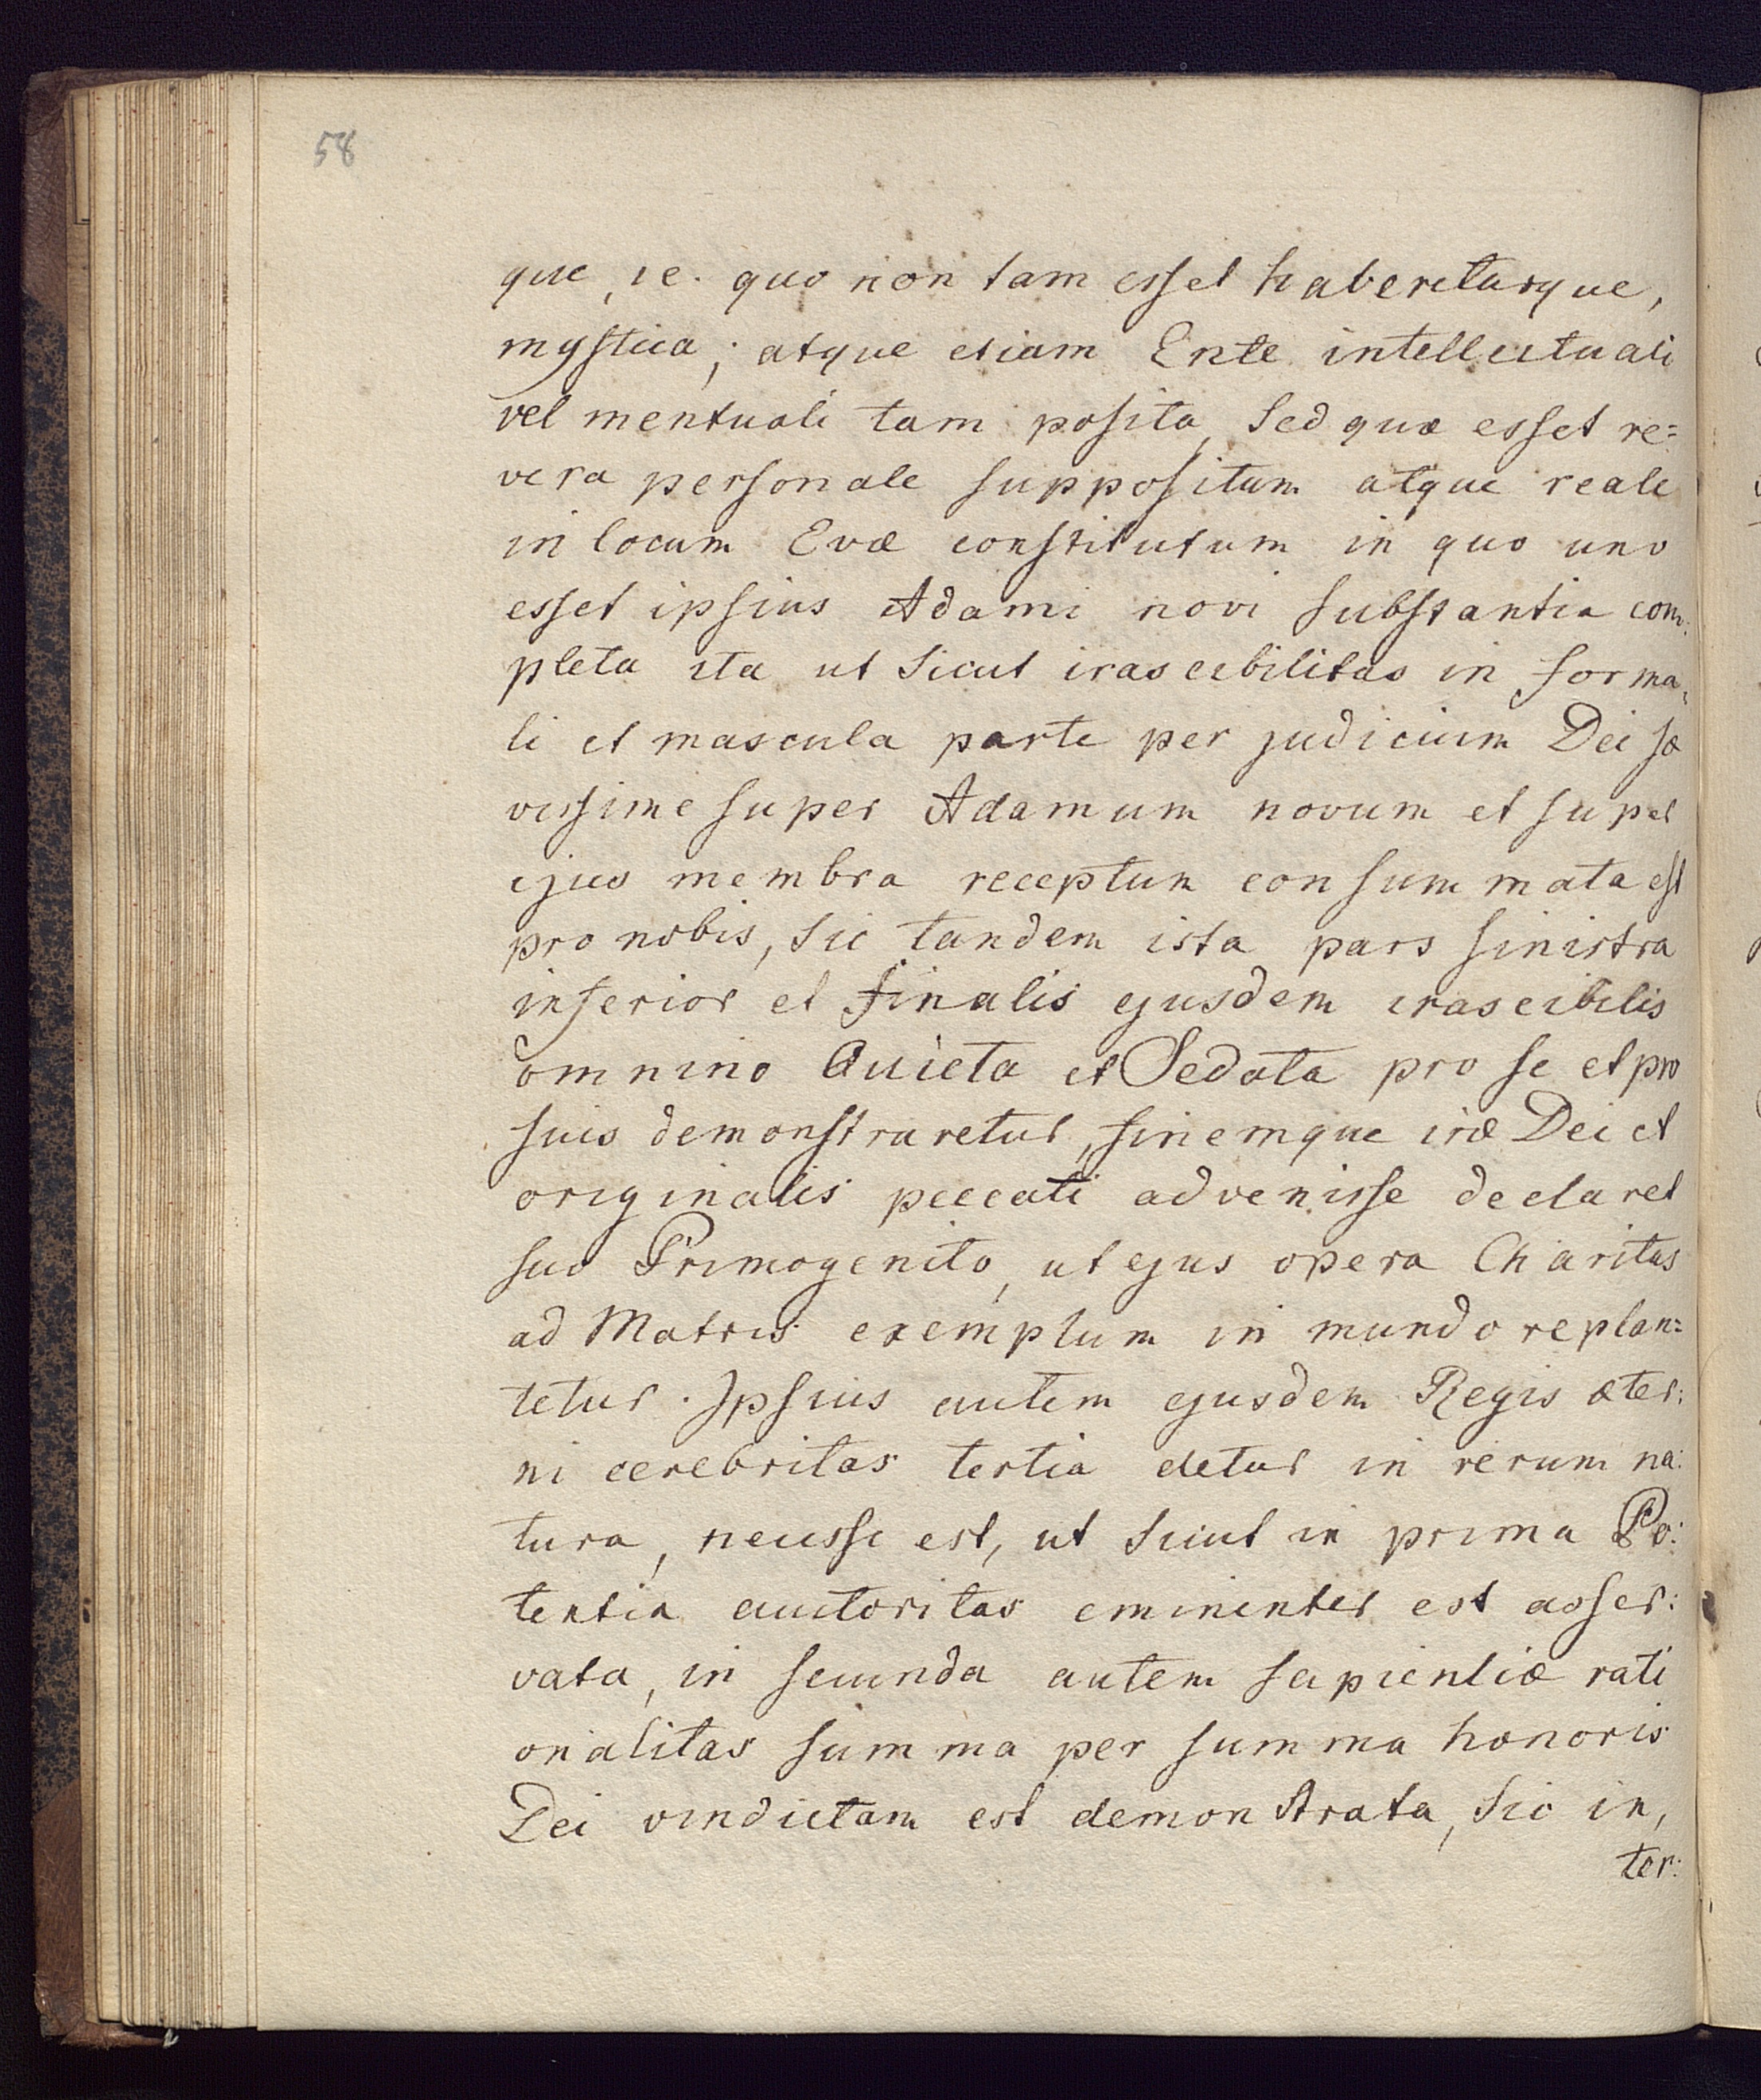 58
que, ie. quo non tam esset habereturque,
mystica; atque etiam Ente intellectuali
vel mentuali tam posita, sed quæ esset re=
vera personale suppositum atque reale
in locum Evæ constitutum in quo uno
esset ipsius Adami novi substantia com:
pleta ita ut sicut irascibilitas in forma,
li et mascula parte per judicium Dei sæ
vissime super Adamum novum et super
ejus membra receptum consummata est
pro nobis, sic tandem ista pars sinistra
inferior et finalis ejusdem irascibilis
omnino Quieta et Sedata pro se et pro
suis demonstraretur, finemque iræ Dei et
originalis peccati advenisse declaret
suo Primogenito, ut ejus opera Charitas
ad Matris exemplum in mundo replan=
tetur. Ipsius autem ejusdem Regis æter:
ni cerebritas tertia detur in rerum na:
tura, necesse est, ut sicut in prima Po:
tentia auctoritas eminenter est asser:
vata, in secunda autem sapientiæ rati
onalitas summa per summa honoris
Dei vindictam est demonstrata, sic in,
ter: